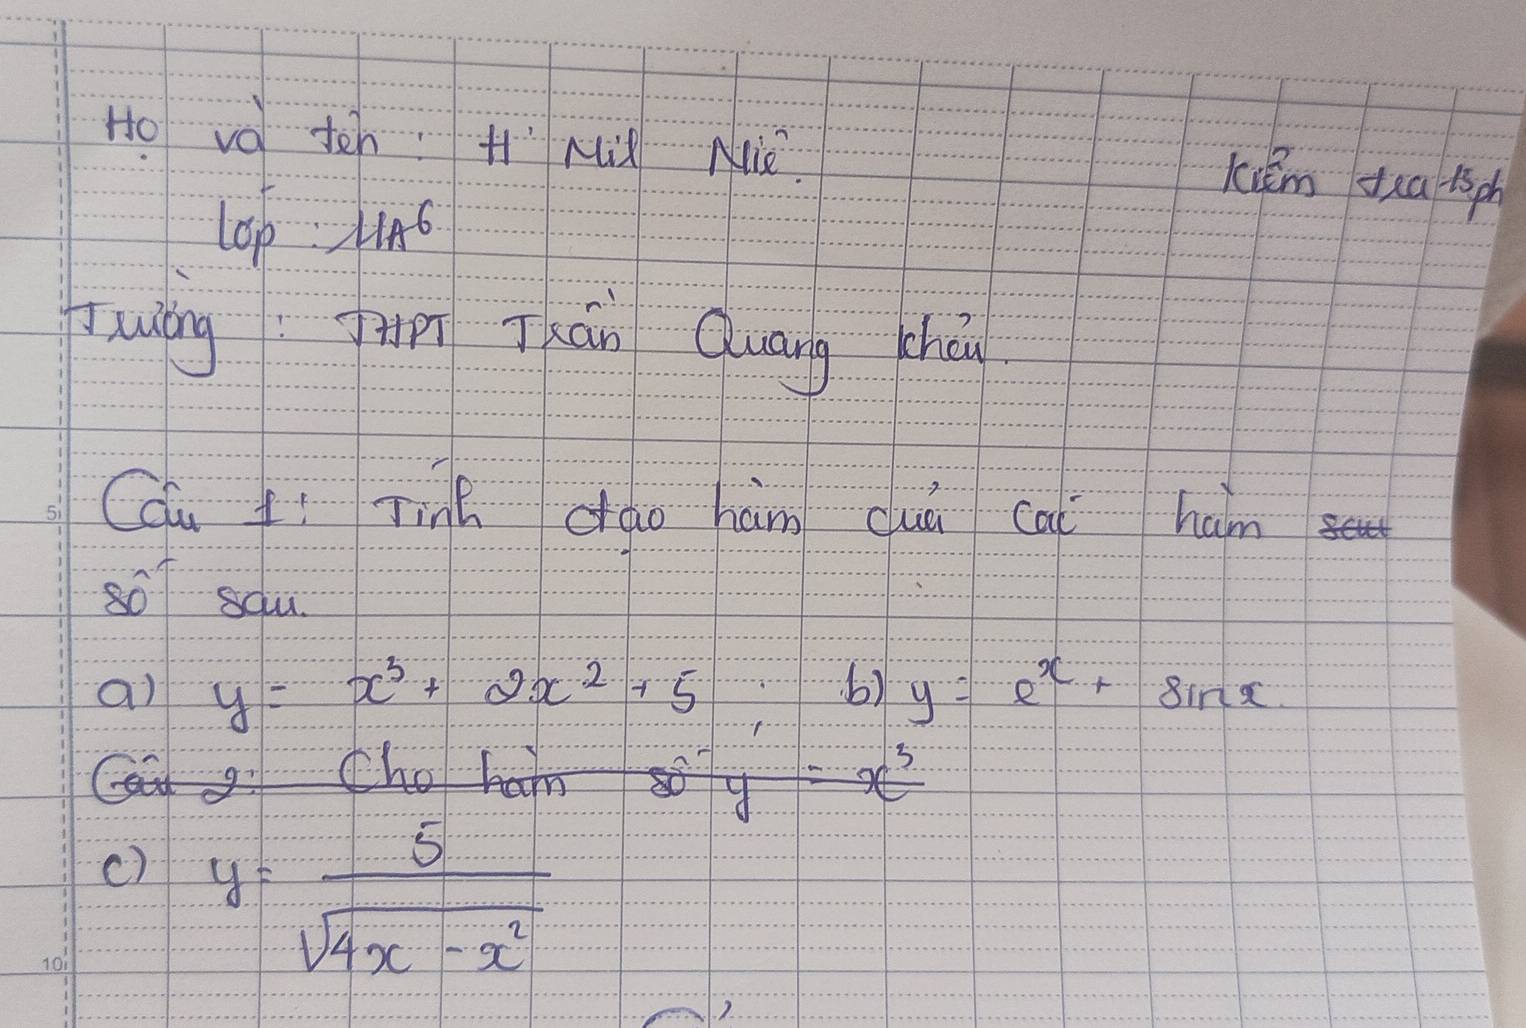 Họ và tên : H' Mil Niê.
Kiểm tra 15ph
Lớp : 11A6
Trường : THPT Trần Quang Khải.
Câu 1: Tính đạo hàm của các hàm sau
số sau.
a) y = x³ + 2x² + 5 ; b) y = e^x + sinx.
Câu 2: Cho hàm số y = x³
c) y = 5 / √(4x - x²)